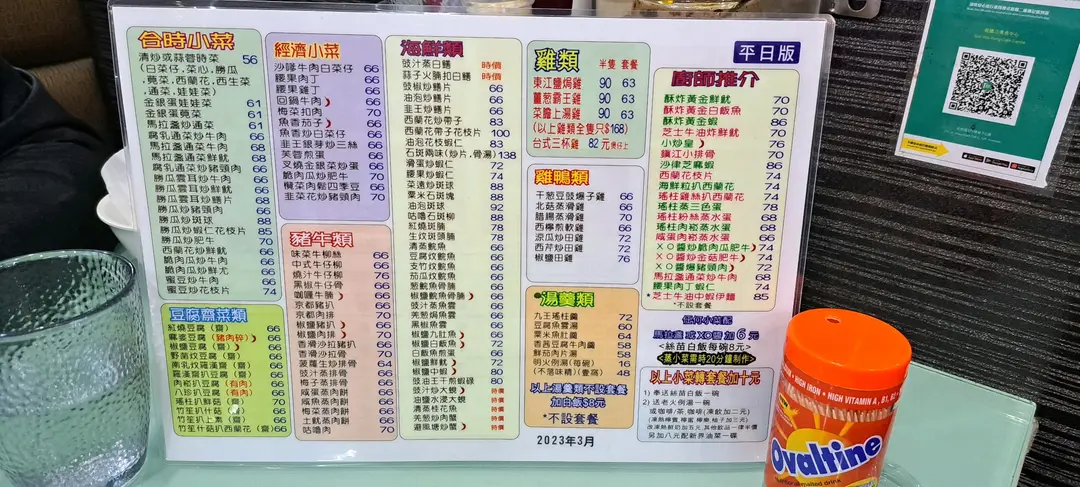 合時小菜
清炒或蒜蓉時菜 56
(白菜仔,菜心,勝瓜
,莧菜,西蘭花,西生菜
,通菜,娃娃菜)
金銀蛋娃娃菜 61
金銀蛋莧菜 61
馬拉盞炒通菜 61
腐乳通菜炒牛肉 68
馬拉盞通菜炒牛肉 68
馬拉盞通菜炒鮮魷 68
腐乳通菜炒豬頸肉 68
勝瓜雲耳炒牛肉 68
勝瓜雲耳炒鮮魷 68
勝瓜雲耳炒肉片 68
勝瓜炒豬頸肉 68
勝瓜炒斑球 88
勝瓜炒蝦仁 85
勝瓜炒肥牛 70
西蘭花炒牛肉 66
脆肉瓜炒牛肉 66
脆肉瓜炒鮮尤 66
蜜豆炒牛肉 66
蜜豆炒花枝片 74
豆腐齋菜類
紅燒豆腐(齋) 66
麻婆豆腐(豬肉碎) 66
椒鹽豆腐(齋) 66
野菌炆豆腐(齋) 66
南乳炆羅漢齋(齋) 66
羅漢扒豆腐(齋) 66
肉崧扒豆腐(有肉) 66
八珍扒豆腐(有肉) 66
瑤柱扒鮮菇(齋) 70
竹笙扒什菇(齋) 66
竹笙扒上素(齋) 66
竹笙什菇扒西蘭花(齋) 66
經濟小菜
沙嗲牛肉白菜仔 66
腰果肉丁 66
腰果雞丁 66
回鍋牛肉 66
梅菜扣肉 70
魚香茄子 66
魚香炒白菜仔 66
韭王銀芽炒三絲 66
芙蓉煎蛋 66
叉燒金銀菜炒蛋 66
脆肉瓜炒牛肉 70
欖菜肉鬆四季豆 66
韭菜花炒豬頸肉 66
豬牛類
味菜牛柳絲 66
中式牛仔柳 66
燒汁牛仔柳 76
黑椒牛仔骨 66
咖喱牛腩 66
京都豬扒 66
京都肉排 70
椒鹽豬扒 66
椒鹽肉排 70
香滑炒沙拉豬扒 66
香滑沙拉骨 70
菠蘿生炒排骨 64
豉汁蒸排骨 66
梅子蒸排骨 66
咸蛋蒸肉餅 66
咸魚蒸肉餅 66
梅菜蒸肉餅 66
土魷蒸肉餅 66
咕嚕肉 70
海鮮類
豉汁蒸白鱔 時價
蒜子火腩扣白鱔 時價
豉椒炒鱔片 66
油泡炒鱔片 66
韭王炒鱔片 66
西蘭花炒帶子 83
西蘭花帶子花枝片 100
油泡花枝蝦仁 83
石斑兩味(炒片,骨湯) 138
滑蛋炒蝦仁 72
脆瓜炒蝦仁 74
菜遠炒斑球 88
粟米石斑塊 88
油泡斑球 92
咕嚕石斑柳 88
紅燒斑腩 78
生炆斑頭腩 78
清蒸鯇魚 66
豆腐炆鯇魚 66
支竹炆鯇魚 66
茄瓜炆鯇魚 66
薑蔥鯇魚骨腩 66
椒鹽鯇魚骨腩 66
豉汁蒸魚雲 66
羌蔥焗魚雲 66
黑椒魚雲 66
椒鹽九肚魚 66
椒鹽白飯魚 66
白飯魚煎蛋 66
椒鹽鮮魷 72
椒鹽中蝦 80
豉油王干煎蝦碌 80
豉汁炒大蜆 特價
油鹽水浸大蜆 特價
清蒸桂花魚 特價
羌蔥炒肉蟹 特價
避風塘炒蟹 特價
雞類 半隻 套餐
東江鹽焗雞 90 63
薑蔥霸王雞 90 63
菜膽上湯雞 90 63
(以上雞類全隻只$168)
台式三杯雞 82元煲仔上
雞鴨類
干蔥豆豉爆子雞 66
北菇蒸滑雞 66
腊腸蒸滑雞 70
西檸煎軟雞 66
涼瓜炒田雞 72
西芹炒田雞 72
椒鹽田雞 76
湯羹類
九王瑤柱羹 72
豆腐魚雲湯 60
粟米魚肚羹 64
香茜豆腐牛肉羹 58
鮮茄肉片湯 58
明火例湯(每碗) 16
(不落味精)(壹窩) 48
以上湯羹類不設套餐
加白飯$8元
*不設套餐
2023年3月
平日版
廚師推介
酥炸黃金鮮魷 70
酥炸黃金白飯魚 70
酥炸黃金蝦 86
芝士牛油炸鮮魷 70
小炒皇 76
鎮江小排骨 70
沙律芝麻蝦 86
西蘭花枝片 74
海鮮粒扒西蘭花 74
瑤柱雞絲扒西蘭花 74
瑤柱蒸三色蛋 78
瑤柱粉絲蒸水蛋 68
瑤柱肉崧蒸水蛋 68
咸蛋肉崧蒸水蛋 66
XO醬炒脆肉瓜肥牛 74
XO醬炒金菇肥牛 74
XO醬爆豬頸肉 72
馬拉盞通菜炒牛肉 68
腰果肉丁蝦仁 74
*芝士牛油中蝦伊麵 85
*不設套餐
任何小菜配
馬拉盞 或 XO醬 加 6 元
<絲苗白飯每碗8元>
<蒸小菜需時20分鐘制作>
以上小菜轉套餐加十元
1) 奉送絲苗白飯一碗
2) 送老火例湯一碗
或咖啡/茶
另加八元配新界油菜一碟
HIGH IRON • HIGH VITAMIN A, B1,
Ovaltine
malted drink